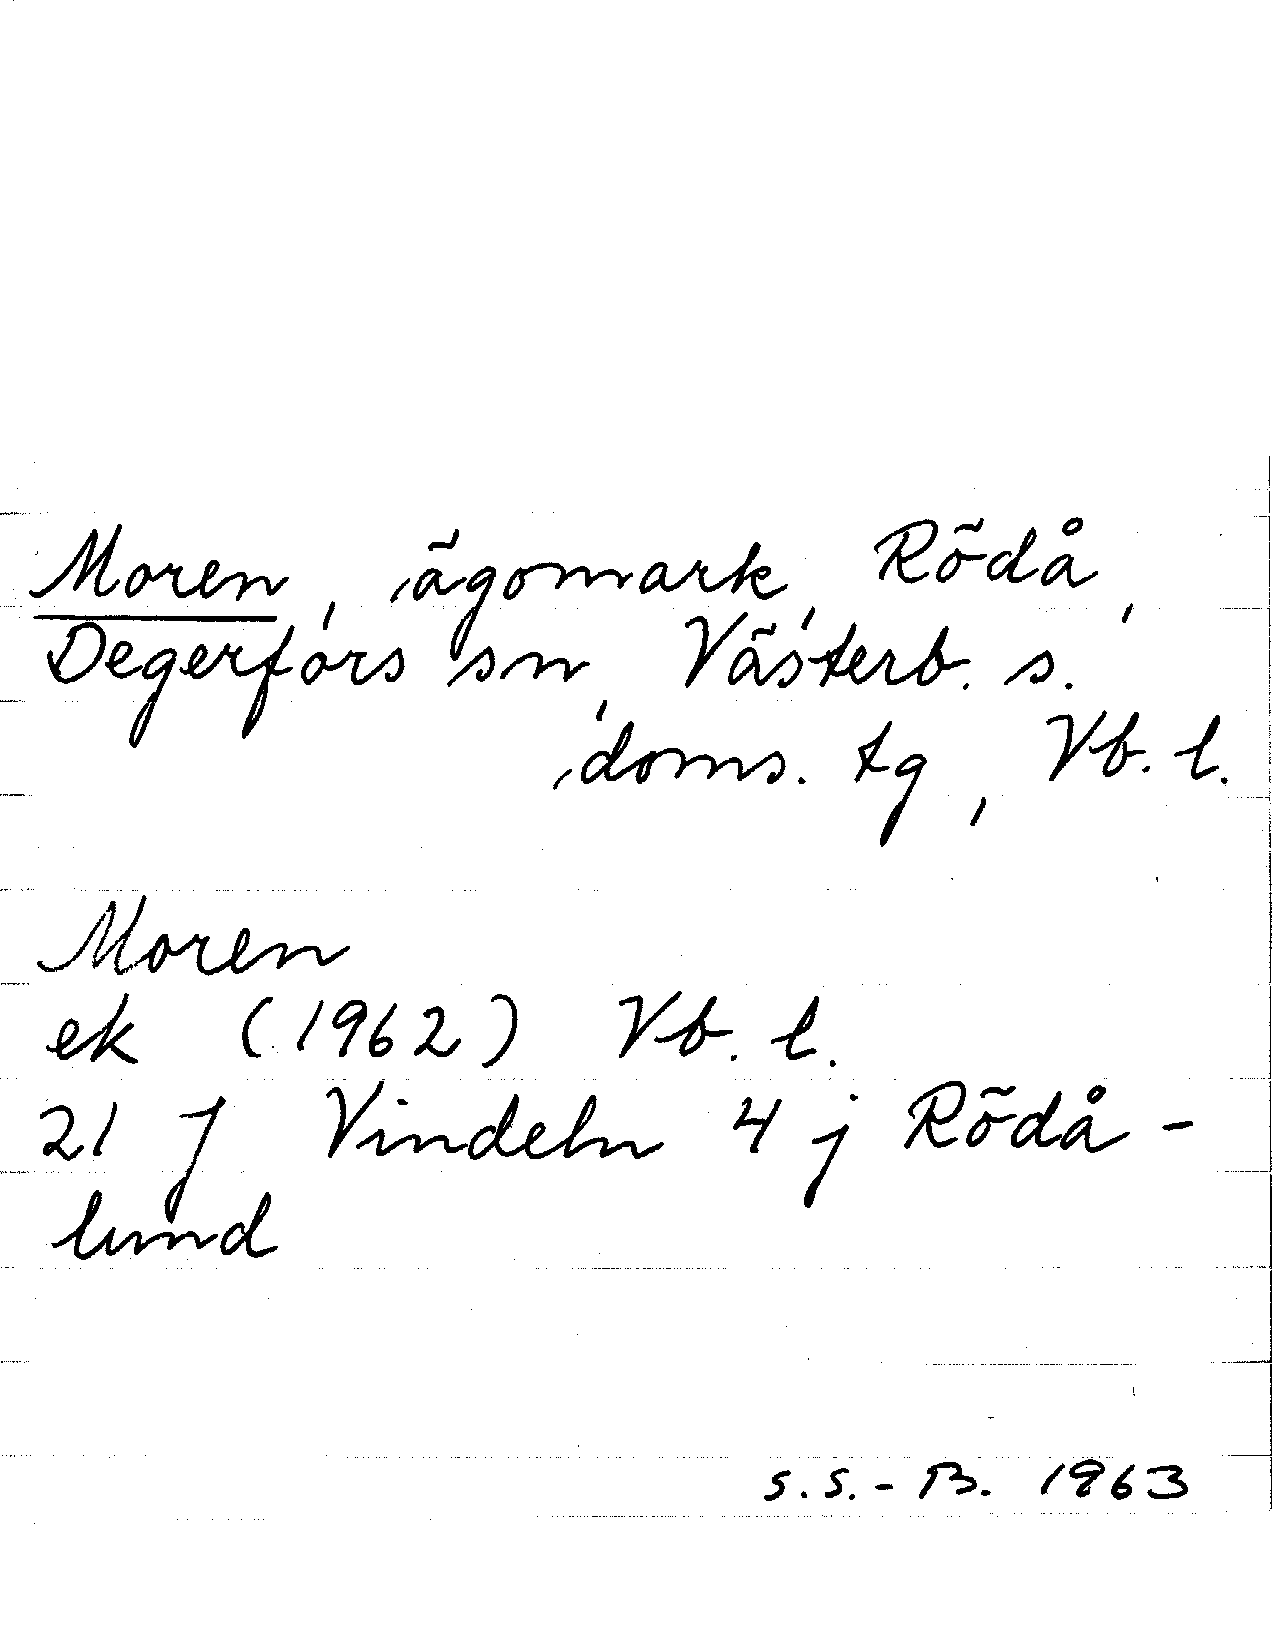 Moren, ägomark, Rödå,
Degerfors sn, Västerb. s.
doms. tg, Vb. l.
Moren
ek (1962) Vb. l.
21 J Vindeln 4 j Rödå-
lund
S.S.-B. 1963